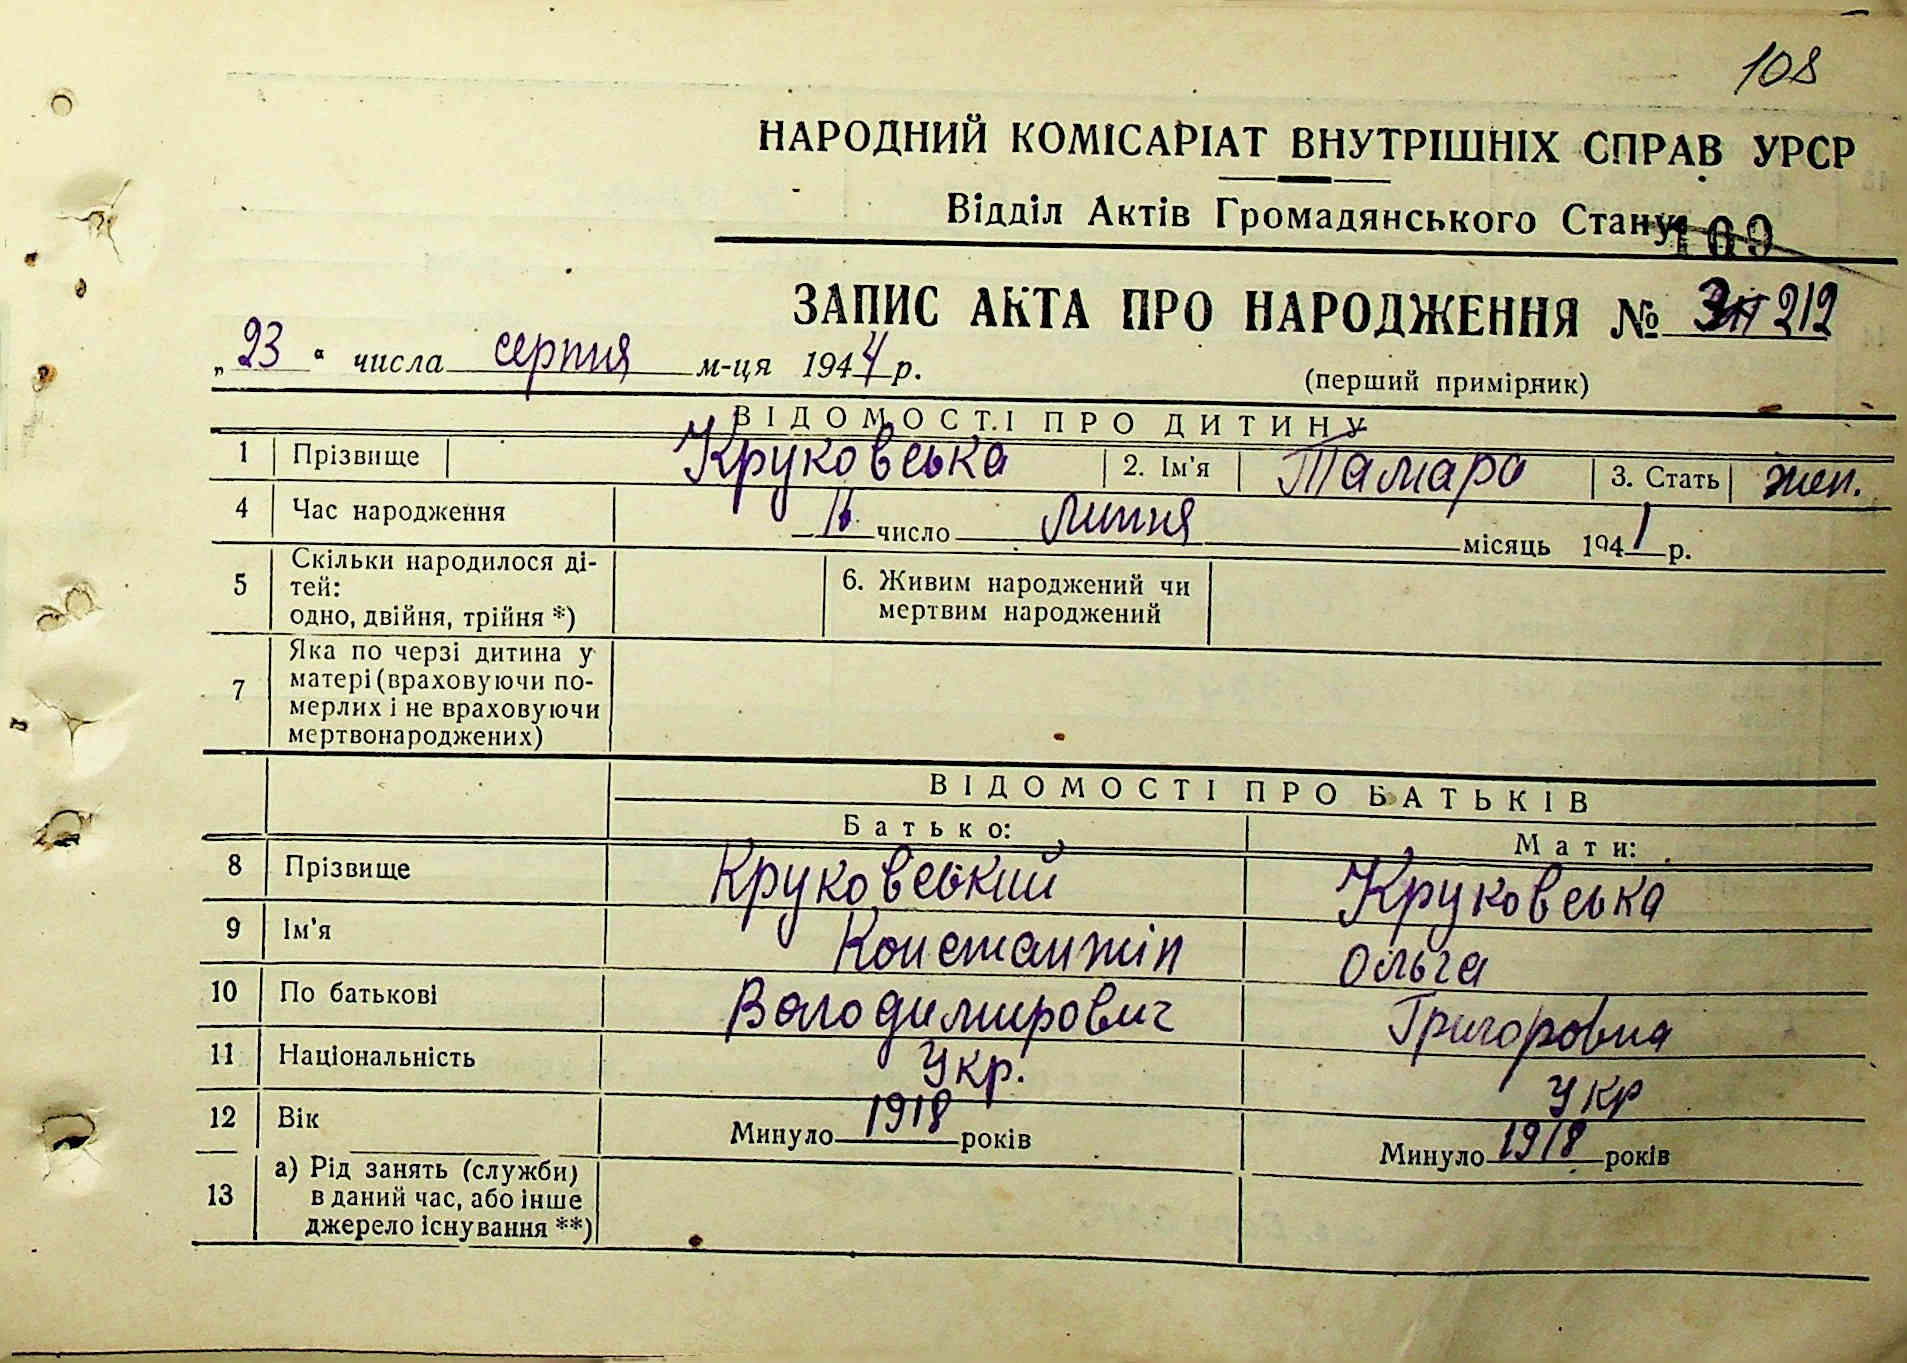 108
НАРОДНИЙ КОМІСАРІАТ ВНУТРІШНІХ СПРАВ УРСР
Відділ Актів Громадянського Стану
109
ЗАПИС АКТА ПРО НАРОДЖЕННЯ № 212
„23“ числа серпня м-ця 1944 р.
(перший примірник)
ВІДОМОСТІ ПРО ДИТИНУ
1 Прізвище Круковська 2. Ім'я Тамара 3. Стать жен.
4 Час народження число липня місяць 1941 р.
5 Скільки народилося ді-
тей:
одно, двійня, трійня *)
6. Живим народжений чи
мертвим народжений
7 Яка по черзі дитина у
матері (враховуючи по-
мерлих і не враховуючи
мертвонароджених)
ВІДОМОСТІ ПРО БАТЬКІВ
Батько: Мати:
8 Прізвище Круковський Круковська
9 Ім'я Константін Ольга
10 По батькові Володимирович Григоровна
11 Національність Укр. Укр
12 Вік Минуло 1918 років Минуло 1918 років
13 а) Рід занять (служби)
в даний час, або інше
джерело існування **)